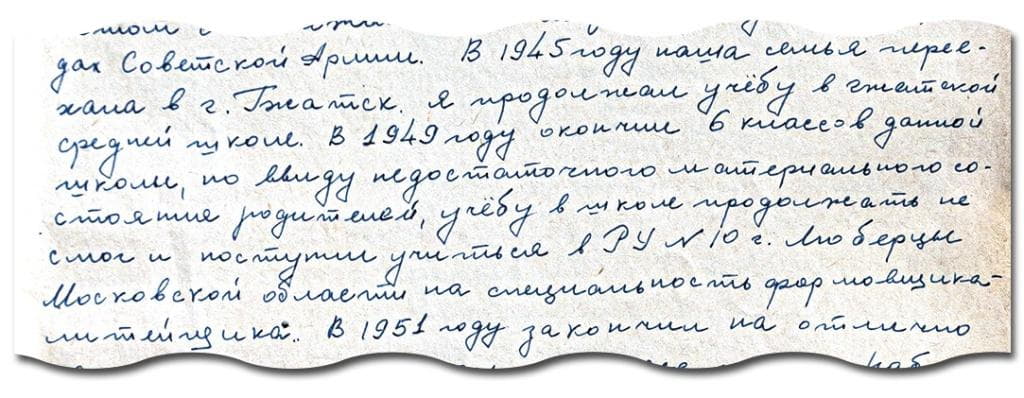 дах Советской Армии. В 1945 году наша семья перее-
хала в г. Гжатск. Я продолжал учёбу в гжатской
средней школе. В 1949 году окончил 6 классов данной
школы, но ввиду недостаточного материального со-
стояние родителей, учёбу в школе продолжать не
смог и поступил учиться в РУ N 10 г. Люберцы
Московской области на специальность формовщика-
литейщика. В 1951 году закончил на отлично